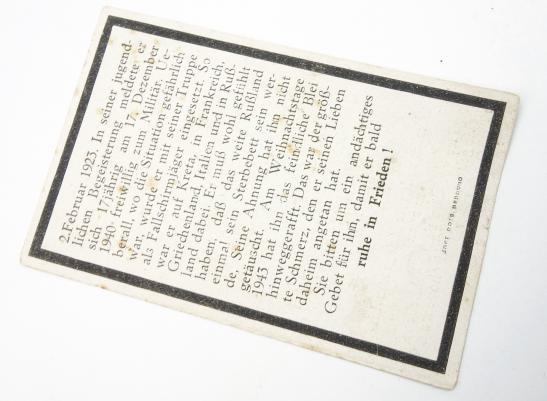 2. Februar 1923. In seiner jugend-
lichen Begeisterung meldete er
sich 17jährig am 17. Dezember
1940 freiwillig zum Militär. Ue-
berall, wo die Situation gefährlich
war, wurde er mit seiner Truppe
als Fallschirmjäger eingesetzt. So
war er auf Kreta, in Frankreich,
Griechenland, Italien und in Ruß-
land dabei. Er muß wohl gefühlt
haben, daß das weite Rußland
einmal sein Sterbebett sein wer-
de. Seine Ahnung hat ihn nicht
getäuscht. Am Weihnachtstage
1943 hat ihn das feindliche Blei
hinweggerafft. Das war der größ-
te Schmerz, den er seinen Lieben
daheim angetan hat.
Sie bitten um ein andächtiges
Gebet für ihn, damit er bald
ruhe in Frieden!